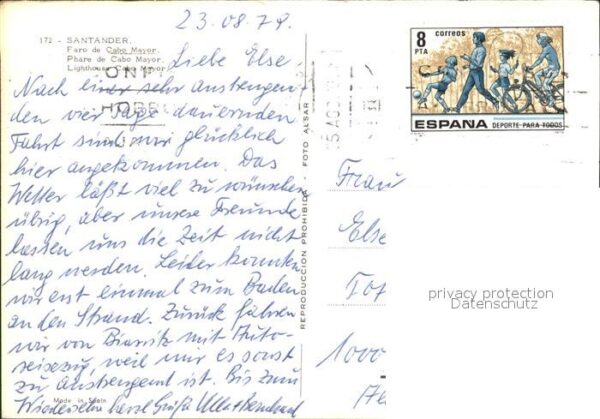 23.08.79.
172 - SANTANDER.
Faro de Cabo Mayor.
Phare de Cabo Mayor.
Lighthouse Cabo Mayor.
Liebe Else.
Nach einer sehr anstengen-
den vier Tage dauernden
Fahrt sind wir glücklich
hier angekommen. Das
Wetter läßt viel zu wünschen
übrig, aber unsere Freunde
lassen uns die Zeit nicht
lang werden. Leider konnten
wir erst einmal zum Baden
an den Strand. Zurück fahren
wir von Biarritz mit Auto-
reisezug, weil mir es sonst
zu anstengend ist. Bis zum
Wiedersehn herzl. Grüße
Made in Spain
REPRODUCCION PROHIBIDA - FOTO ALSAR
8
PTA
correos
ESPAÑA DEPORTE PARA TODOS
Frau
Else
1000
privacy protection
Datenschutz